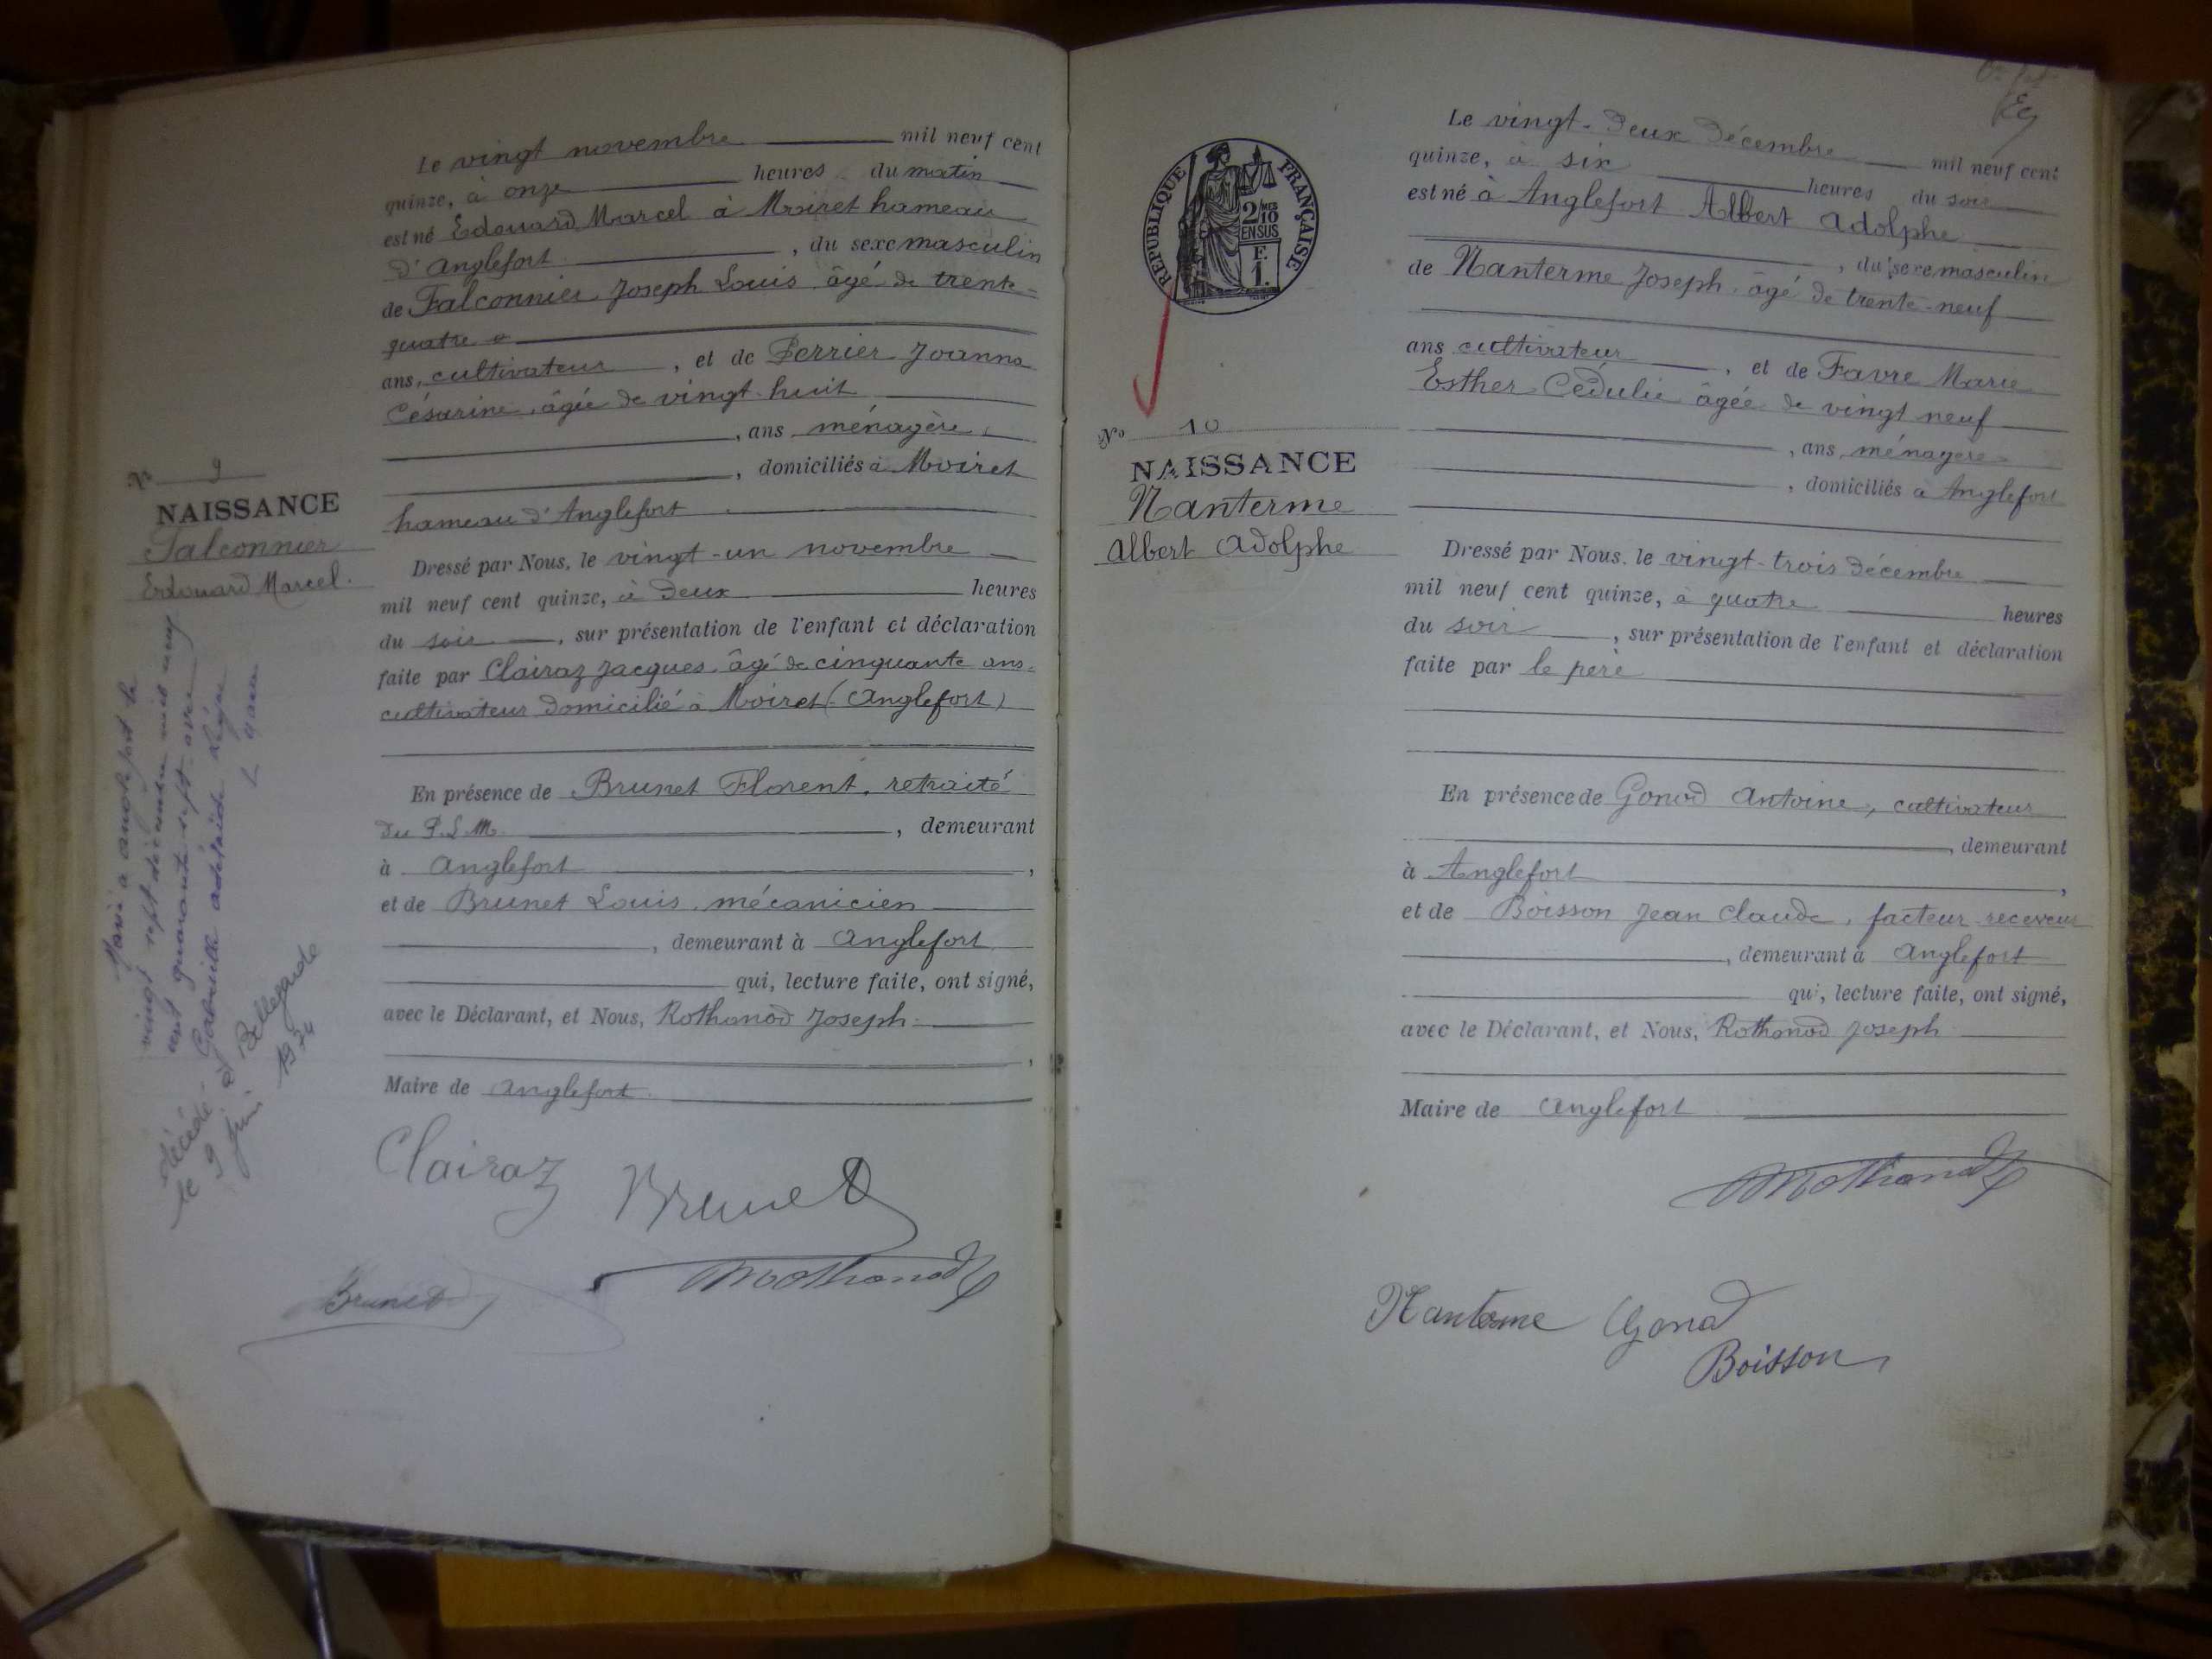 Le vingt novembre mil neuf cent
quinze, à onze heures du matin
est né Edouard Marcel à Moiret hameau
d'Anglefort , du sexe masculin
de Falconnier Joseph Louis, âgé de trente-
quatre
ans, cultivateur , et de Perrier Joanna
Césarine, âgée de vingt-huit
, ans ménagère,
, domiciliés à Moiret
hameau d'Anglefort
Dressé par Nous, le vingt-un novembre
mil neuf cent quinze, à deux heures
du soir , sur présentation de l'enfant et déclaration
faite par Clairaz Jacques, âgé de cinquante ans,
cultivateur domicilié à Moiret (Anglefort)
En présence de Brunet Florent, retraité
du P.L.M. , demeurant
à Anglefort ,
et de Brunet Louis, mécanicien
, demeurant à Anglefort
qui, lecture faite, ont signé,
avec le Déclarant, et Nous, Rothonod Joseph
,
Maire de Anglefort
Clairaz Brunet
Brunet Rothonod
No 9
NAISSANCE
Falconnier
Edouard Marcel.
Marié à le
vingt sept décembre mil neuf
cent quarante sept avec
Gabrielle Adélaïde
décédé à Bellegarde
le 9 juin 1974
RÉPUBLIQUE FRANÇAISE
2/10 MES
EN SUS
F.
1.
No 10
NAISSANCE
Nanterme
Albert Adolphe
Le vingt-deux décembre mil neuf cent
quinze, à six heures du soir
est né à Anglefort Albert Adolphe
, du sexe masculin
de Nanterme Joseph, âgé de trente-neuf
ans cultivateur , et de Favre Marie
Esther Cédulie âgée de vingt neuf
, ans, ménagère
, domiciliés à Anglefort
Dressé par Nous, le vingt-trois décembre
mil neuf cent quinze, à quatre heures
du soir , sur présentation de l'enfant et déclaration
faite par le père
En présence de Gonod Antoine, cultivateur
, demeurant
à Anglefort ,
et de Boisson Jean Claude, facteur-receveur
, demeurant à Anglefort
qui, lecture faite, ont signé,
avec le Déclarant, et Nous, Rothonod Joseph
Maire de Anglefort
Rothonod
Nanterme Gonod
Boisson